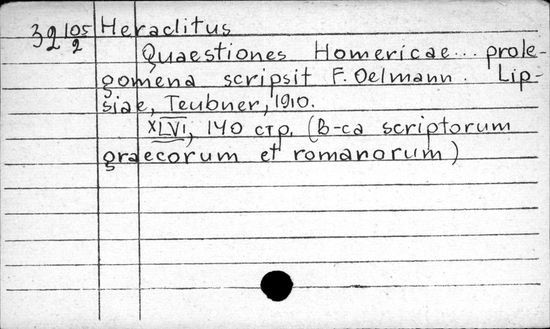 32 105/2 Heraclitus
Quaestiones Homericae... prole-
gomena scripsit F. Oelmann. Lip-
siae, Teubner, 1910.
XLVI, 140 стр. (B-ca scriptorum
graecorum et romanorum)